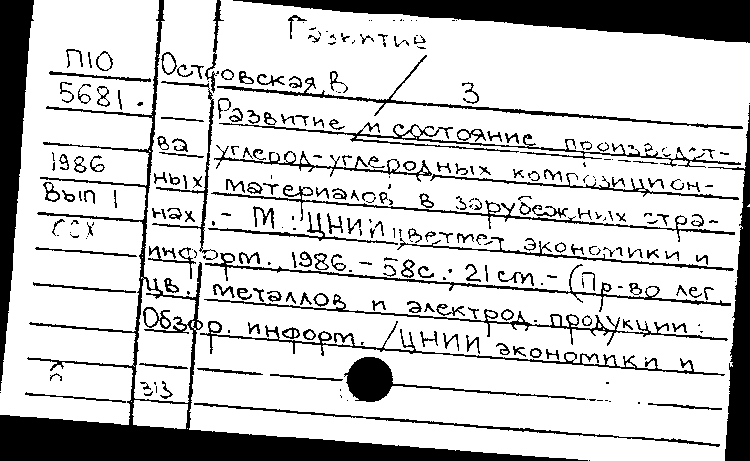 Развитие
П10 Островская, В 3
5681. Развитие и состояние производст-
ва углерод-углеродных композицион-
1986 ных материалов в зарубежных стра-
Вып 1 нах. - М.: ЦНИИцветмет экономики и
ССХ информ., 1986. - 58с.; 21см. - (Пр-во лег.
цв. металлов и электрод. продукции:
Обзор. информ. / ЦНИИ экономики и
313